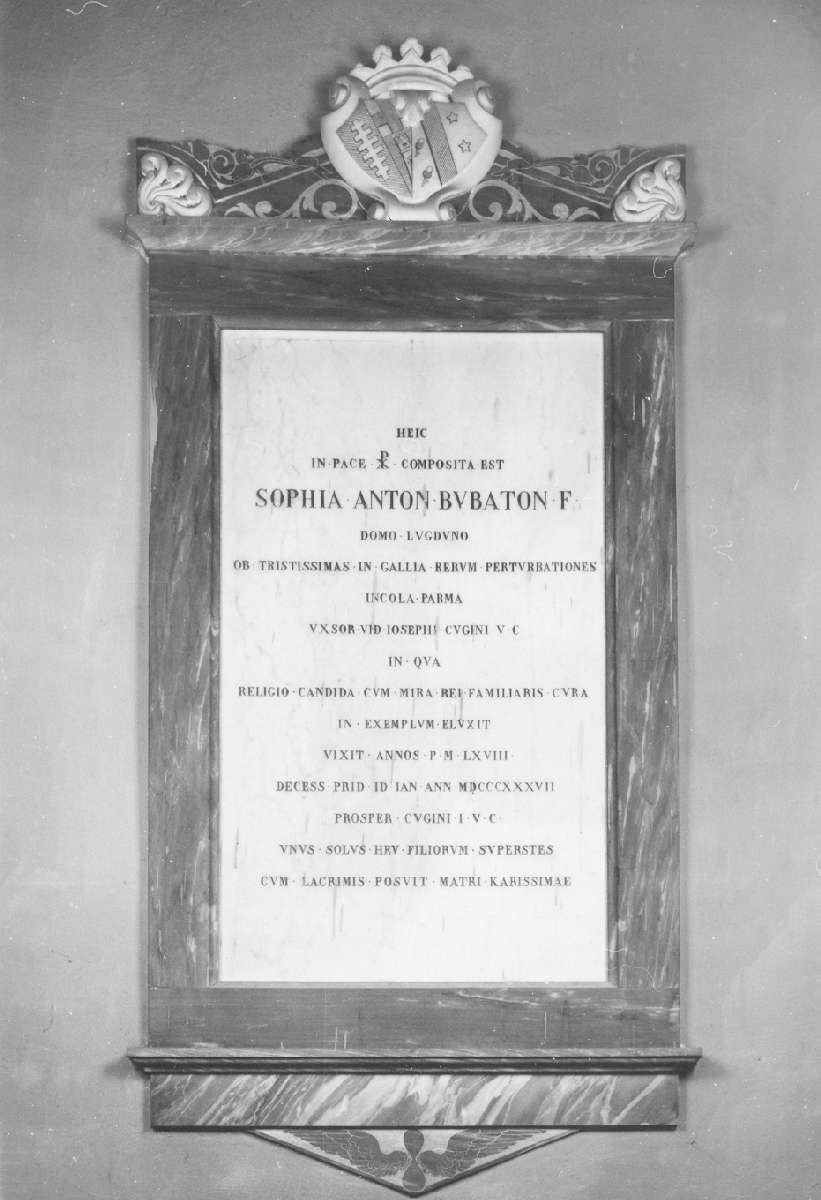 HEIC
IN·PACE·☧·COMPOSITA·EST
SOPHIA·ANTON·BVBATON·F·
DOMO·LVGDVNO
OB·TRISTISSIMAS·IN·GALLIA·RERVM·PERTVRBATIONES
INCOLA·PARMA
VXSOR·VID·IOSEPHI·CVGINI·V·C
IN·QVA
RELIGIO·CANDIDA·CVM·MIRA·REI·FAMILIARIS·CVRA
IN·EXEMPLVM·ELVXIT
VIXIT·ANNOS·P·M·LXVIII·
DECESS·PRID·ID·IAN·ANN·MDCCCXXXVII
PROSPER·CVGINI·I·V·C·
VNVS·SOLVS·HEV·FILIORVM·SVPERSTES
CVM·LACRIMIS·POSVIT·MATRI·KARISSIMAE